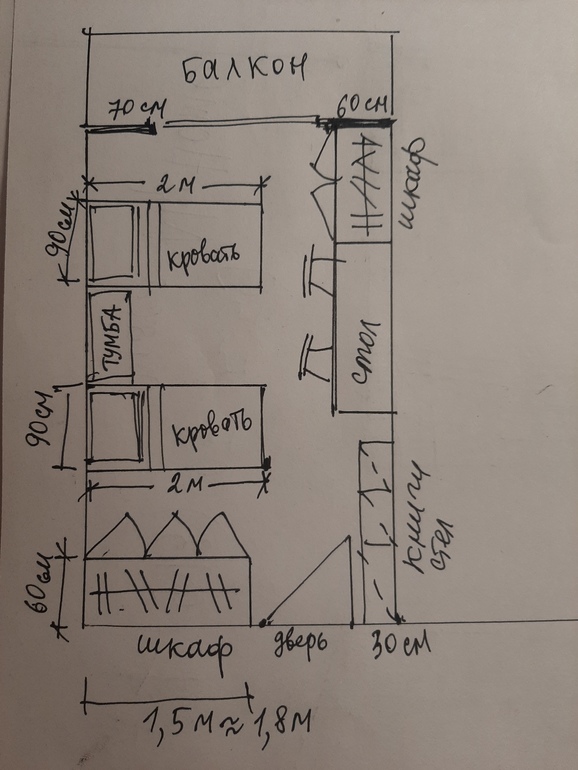 БАЛКОН
70 см
60 см
2 м
шкаф
90 см
кровать
ТУМБА
стол
90 см
кровать
2 м
книги
стел
60 см
шкаф
дверь
30 см
1,5 м ≈ 1,8 м